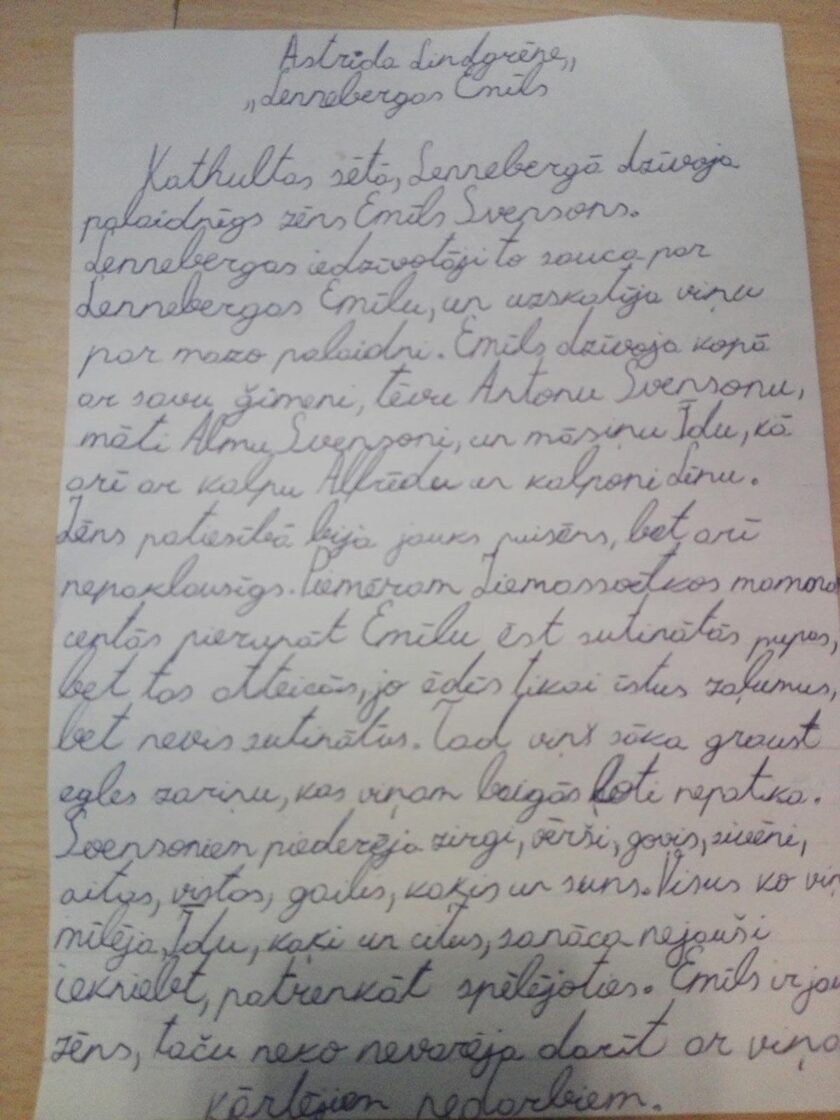 Astrīda Lindgrēne„
„Lennebergas Emīls
Kathultas sētā, Lennebergā dzīvoja
palaidnīgs zēns Emīls Svensons.
Lennebergas iedzīvotāji to sauca par
Lennebergas Emīlu, un uzskatīja viņu
par mazo palaidni. Emīls dzīvoja kopā
ar savu ģimeni, tēvu Antonu Svensonu,
māti Almu Svensoni, un māsiņu Īdu, kā
arī ar kalpu Alfrēdu un kalponi Līnu.
Zēns patiesībā bija jauks puisēns, bet arī
nepaklausīgs. Piemēram Ziemassvētkos mamma
centās pierunāt Emīlu ēst sutinātās pupas,
bet tas atteicās, jo ēdīs tikai īstus zaļumus,
bet nevis sutinātus. Tad viņš sāka grauzt
egles zariņu, kas viņam beigās ļoti nepatika.
Svensoniem piederēja zirgi, vērši, govis, sivēni,
aitas, vistas, gailis, kaķis un suns. Visus ko viņ
mīlēja, Īdu, kaķi un citus, sanāca nejauši
iekniebt, patrenkāt spēlējoties. Emīls ir jau
zēns, taču neko nevarēja darīt ar viņa
kārtējiem nedarbiem.